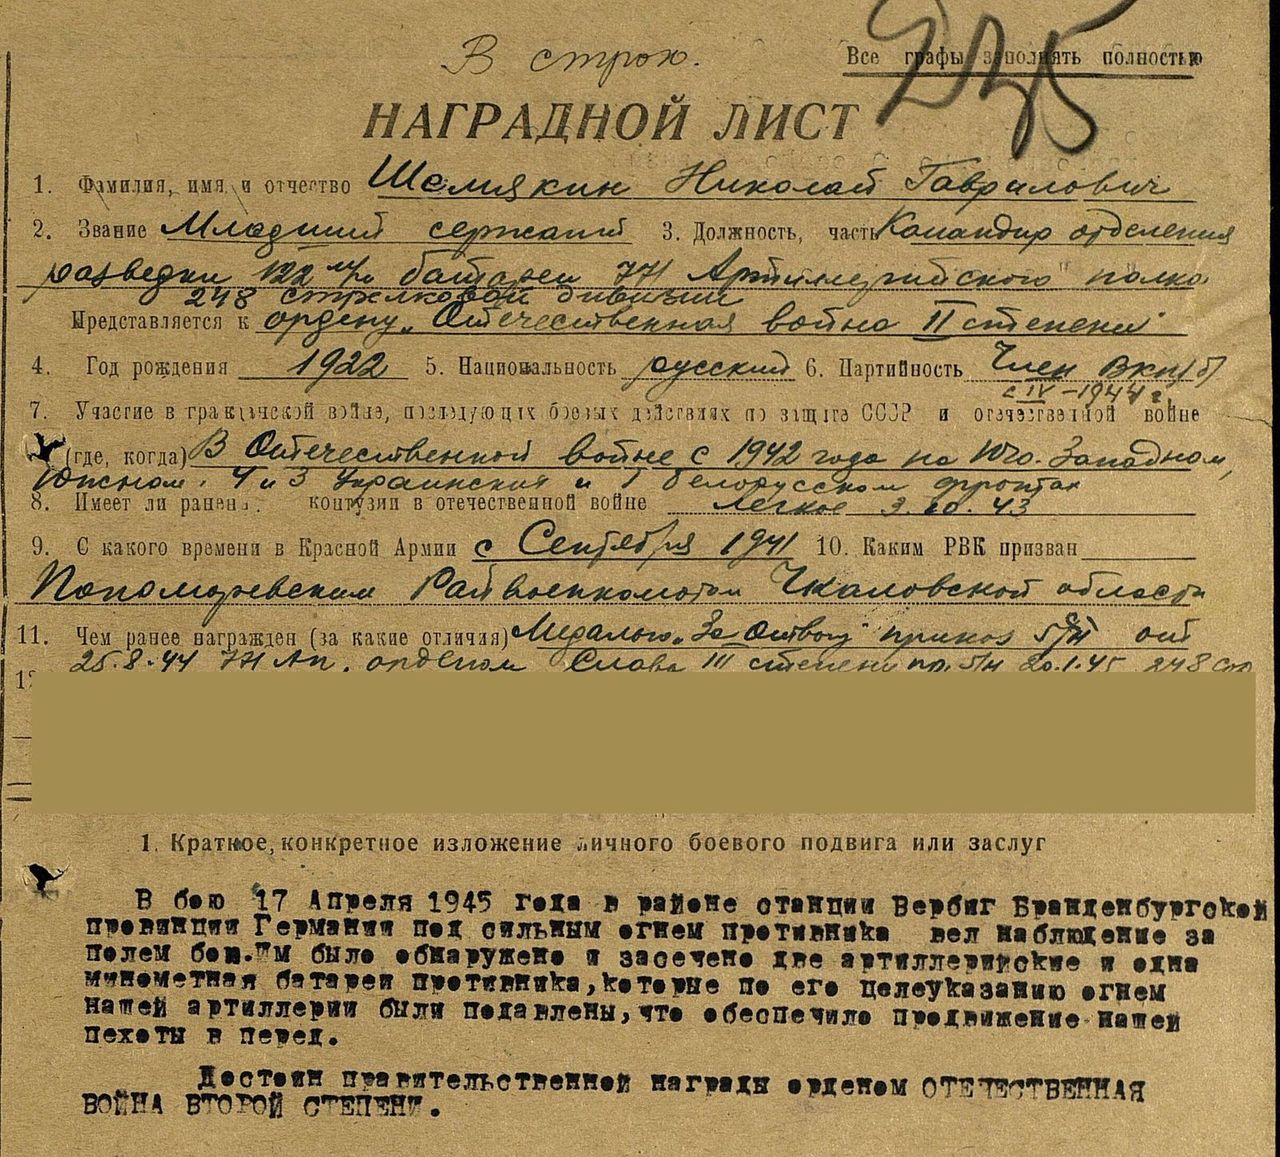 В строк.
225
Все графы заполнять полностью
НАГРАДНОЙ ЛИСТ
1. Фамилия, имя и отчество Шемякин Николай Гаврилович
2. Звание Младший сержант 3. Должность, часть Командир отделения
разведки 122 м/м батареи 771 Артиллерийского полка
248 стрелковой дивизии
Представляется к ордену „Отечественная война II степени"
4. Год рождения 1922 5. Национальность русский 6. Партийность Член ВКП/б/
с IV-1944 г.
7. Участие в гражданской войне, последующих боевых действиях по защите СССР и отечественной войне
(где, когда) В Отечественной войне с 1942 года на Юго. Западном,
Южном. 4 и 3 Украинских и 1 белорусском фронтах
8. Имеет ли ранен. контузии в отечественной войне легкое 3.10.43
9. С какого времени в Красной Армии с Сентября 1941 10. Каким РВК призван
Пономаревским Райвоенкоматом Чкаловской области
11. Чем ранее награжден (за какие отличия) Медалью „За Отвагу" приказ 5/н от
25.8.44 771 Ап. орденом Слава III степени пр. 5/н 20.1.45 248 стр
1. Краткое, конкретное изложение личного боевого подвига или заслуг
В бою 17 Апреля 1945 года в районе станции Вербиг Бранденбургской
провинции Германии под сильным огнем противника вел наблюдение за
полем боя.Им было обнаружено и засечено две артиллерийские и одна
минометная батареи противника,которые по его целеуказанию огнем
нашей артиллерии были подавлены,что обеспечило продвижение нашей
пехоты в перед.
Достоин правительственной награды орденом ОТЕЧЕСТВЕННАЯ
ВОЙНА ВТОРОЙ СТЕПЕНИ.